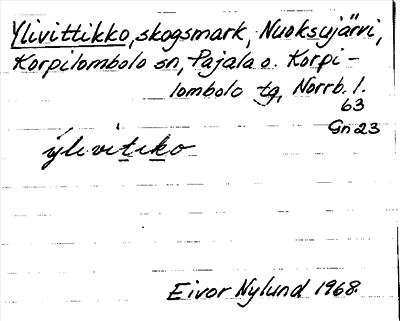 Ylivittikko, skogsmark, Nuoksujärvi,
Korpilombolo sn, Pajala o. Korpi-
lombolo tg, Norrb. l.
63
Gn 23
ýlivitiko
Eivor Nylund 1968.